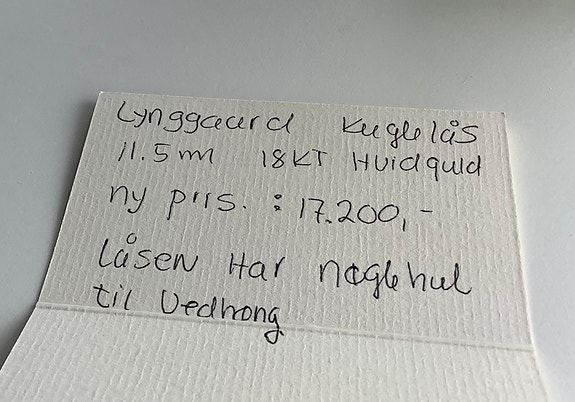 Lynggaard Kuglelås
11.5 m 18KT Hvidguld
ny pris. : 17.200,-
låsen Har nøglehul
til Vedhæng